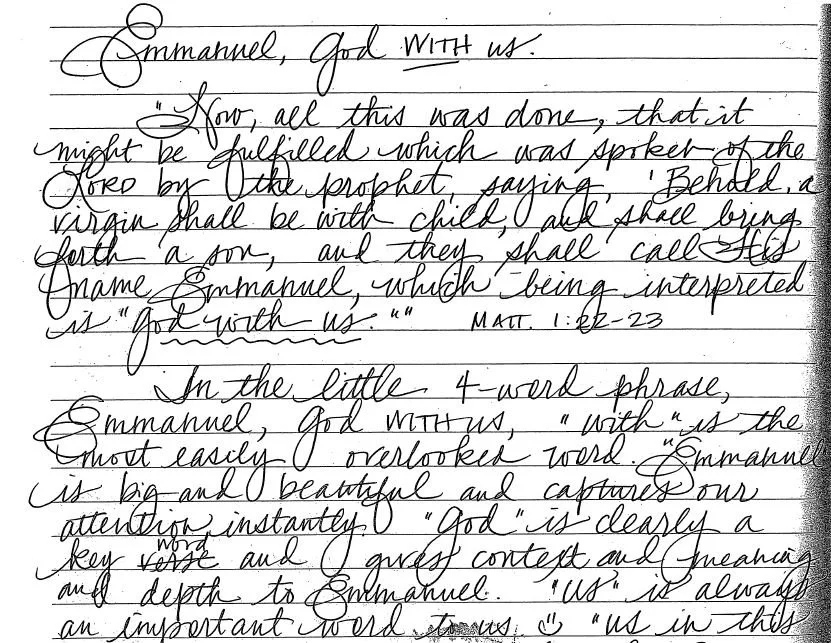 Emmanuel, God WITH us.
"Now, all this was done, that it
might be fulfilled which was spoken of the
LORD by the prophet, saying, 'Behold, a
virgin shall be with child, and shall bring
forth a son, and they shall call His
name Emmanuel, which being interpreted
is "God with us."" MATT. 1:22-23
In the little 4-word phrase,
Emmanuel, God WITH us, "with" is the
most easily overlooked word. "Emmanuel"
is big and beautiful and captures our
attention instantly. "God" is clearly a
word
key verse and gives context and meaning
and depth to Emmanuel. "Us" is always
an important word to us "us in this